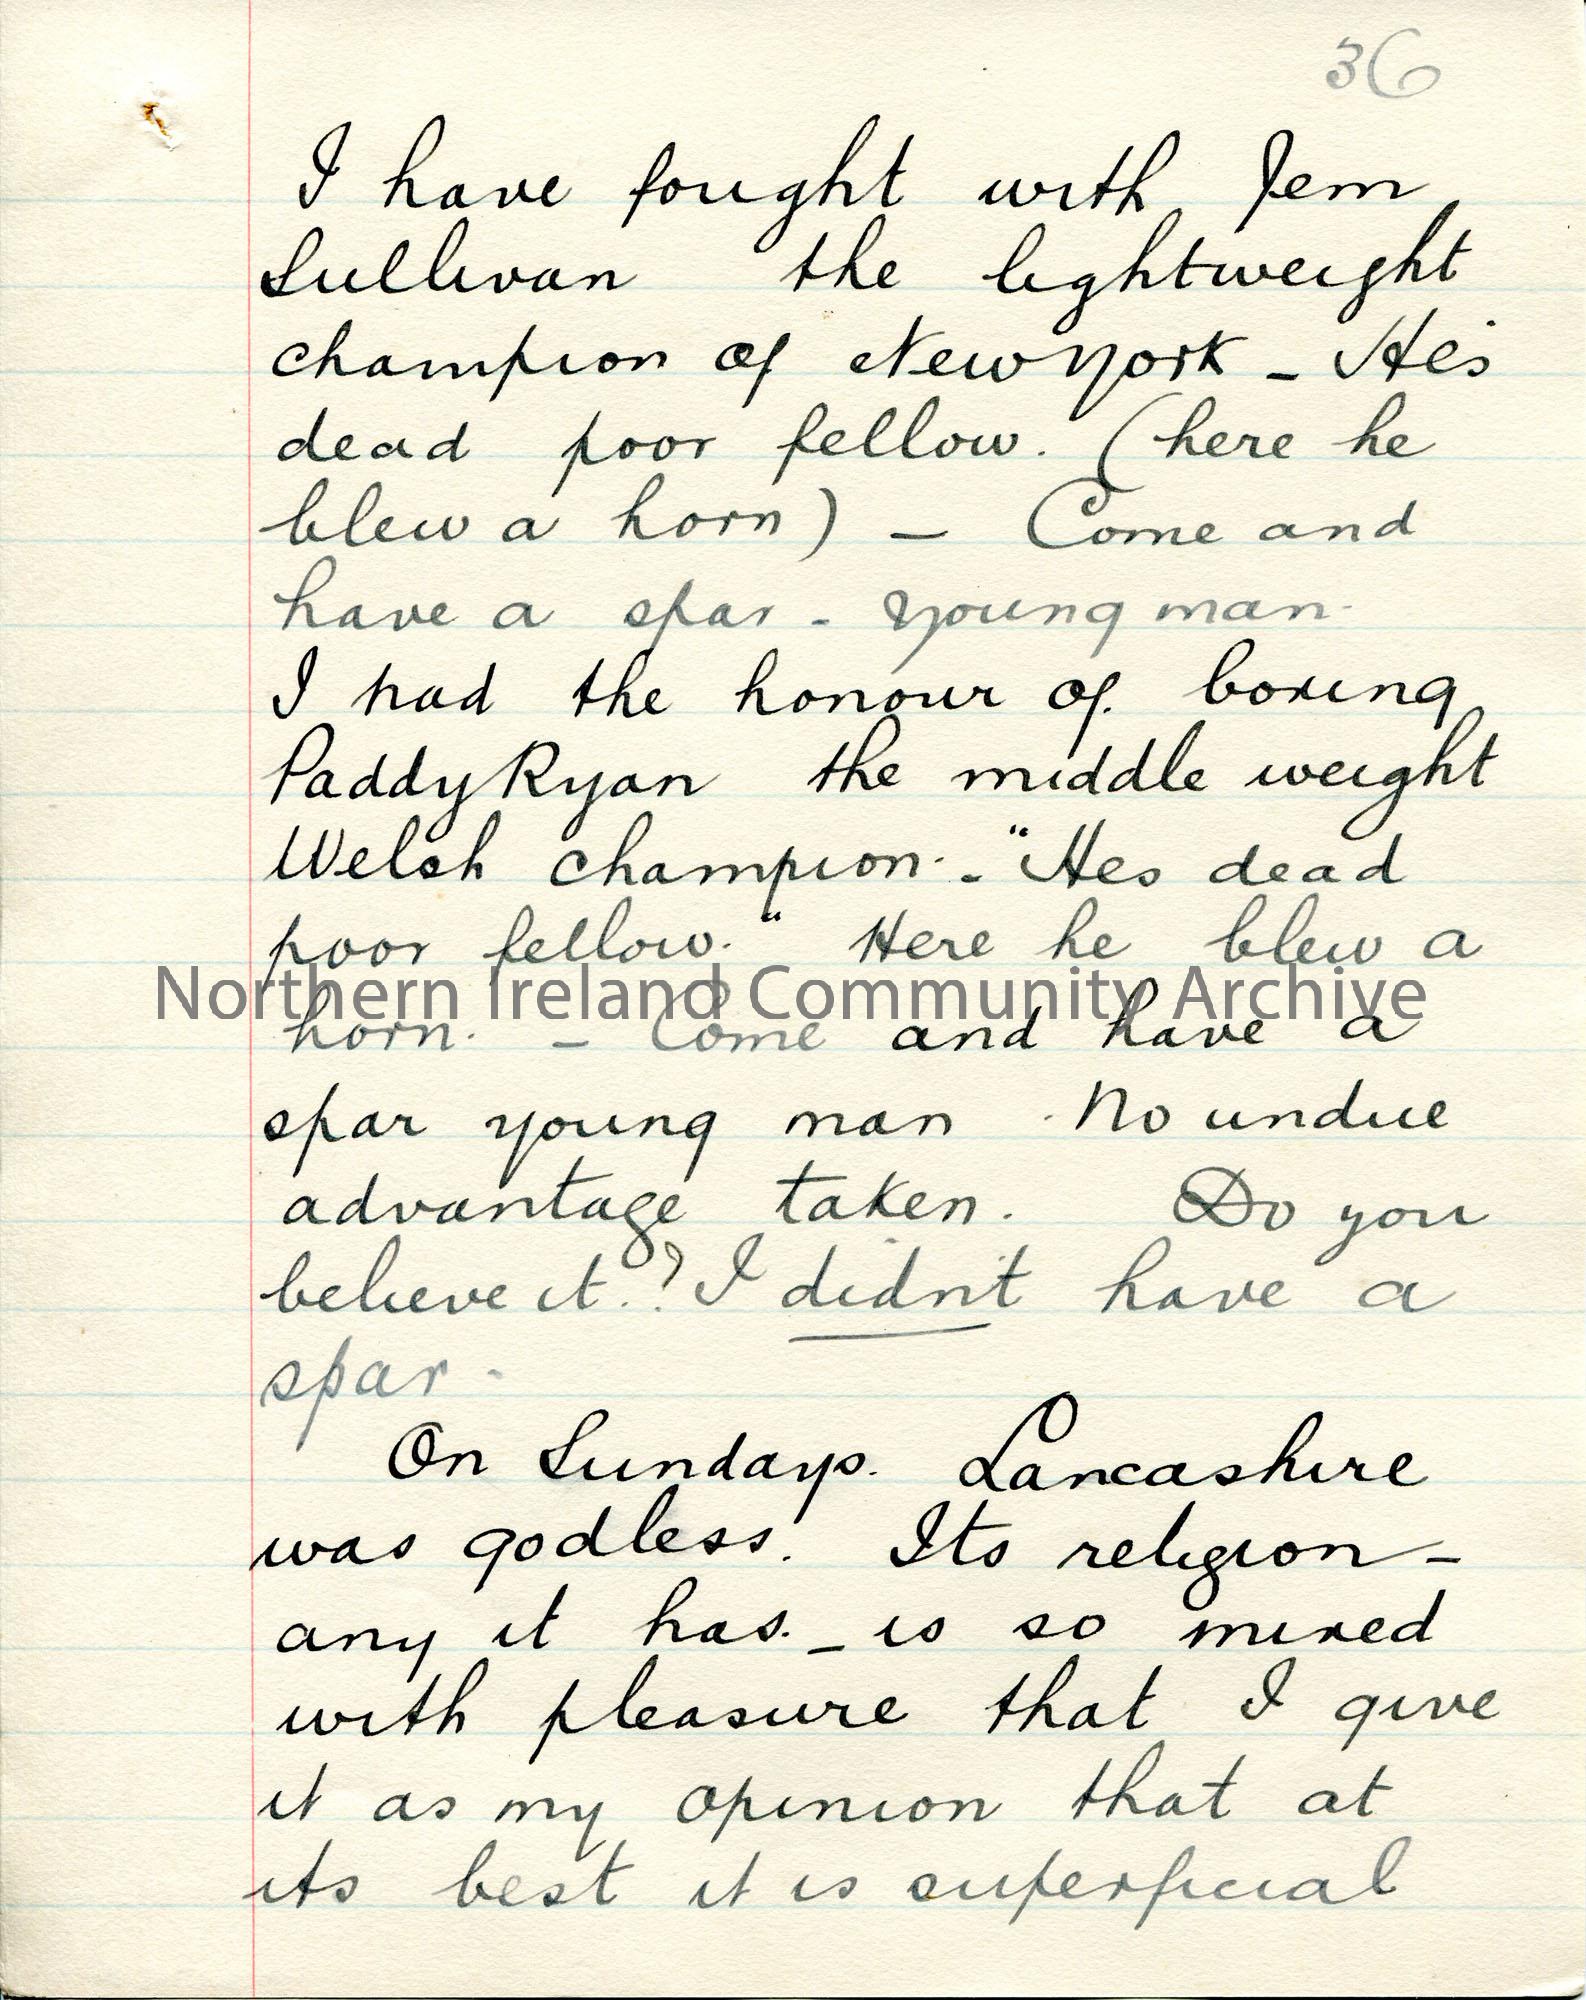 36
I have fought with Jem
Sullivan the lightweight
champion of New York – He's
dead poor fellow. (here he
blew a horn) – Come and
have a spar - young man.
I had the honour of boxing
Paddy Ryan the middle weight
Welsh champion. - "Hes dead
poor fellow." Here he blew a
Northern Ireland Community Archive
horn. – Come and have a
spar young man. No undue
advantage taken. Do you
believe it.? I didn't have a
spar -
On Sundays. Lancashire
was godless. Its religion –
any it has. – is so mixed
with pleasure that I give
it as my opinion that at
its best it is superficial